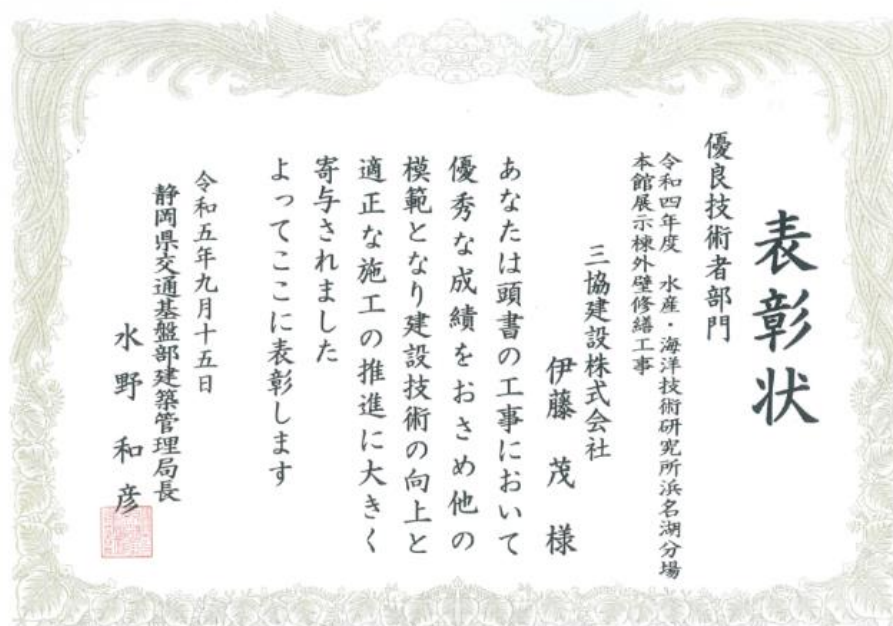 表彰状
優良技術者部門
令和四年度 水産・海洋技術研究所浜名湖分場
本館展示棟外壁修繕工事
三協建設株式会社
伊藤 茂 様
あなたは頭書の工事において
優秀な成績をおさめ他の
模範となり建設技術の向上と
適正な施工の推進に大きく
寄与されました
よってここに表彰します
令和五年九月十五日
静岡県交通基盤部建築管理局長
水野和彦